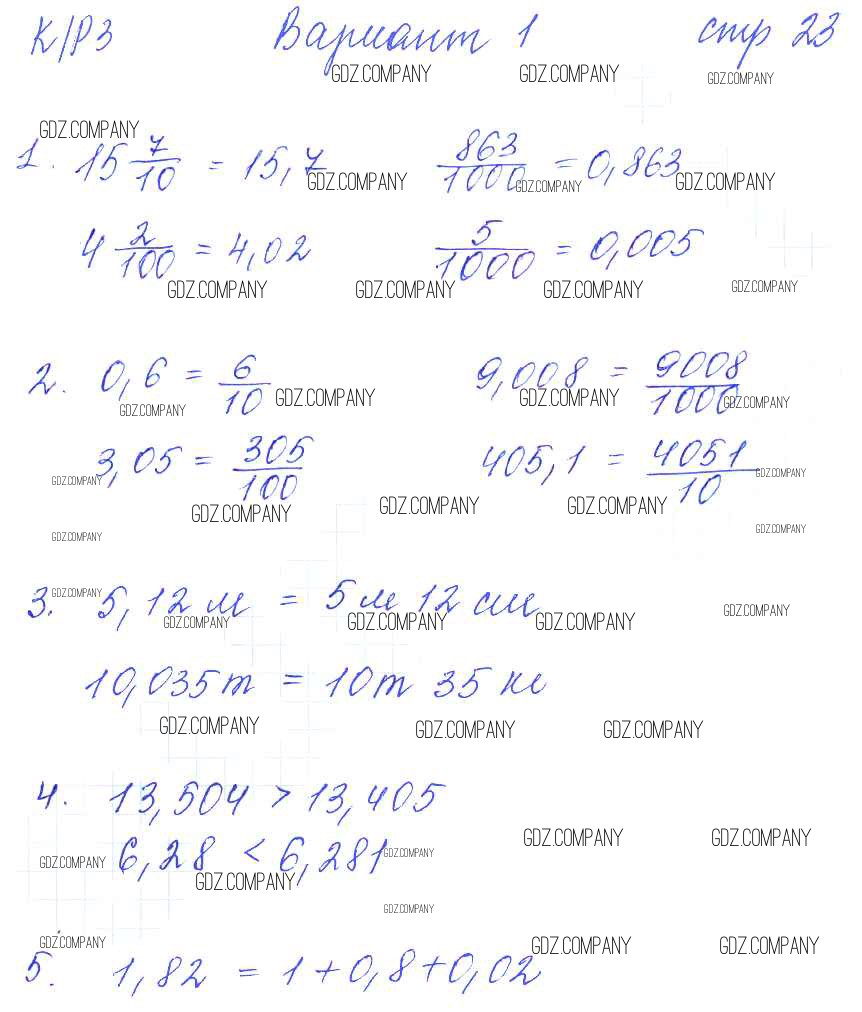 К/Р3 Вариант 1 стр 23
GDZ.COMPANY GDZ.COMPANY GDZ.COMPANY
GDZ.COMPANY
1. 15 7/10 = 15,7 863/1000 = 0,863
GDZ.COMPANY GDZ.COMPANY GDZ.COMPANY
4 2/100 = 4,02 5/1000 = 0,005
GDZ.COMPANY GDZ.COMPANY GDZ.COMPANY GDZ.COMPANY
2. 0,6 = 6/10 9,008 = 9008/1000
GDZ.COMPANY GDZ.COMPANY GDZ.COMPANY GDZ.COMPANY
3,05 = 305/100 405,1 = 4051/10
GDZ.COMPANY GDZ.COMPANY
GDZ.COMPANY GDZ.COMPANY GDZ.COMPANY
GDZ.COMPANY GDZ.COMPANY
3. 5,12 м = 5 м 12 см
GDZ.COMPANY GDZ.COMPANY GDZ.COMPANY GDZ.COMPANY GDZ.COMPANY
10,035 т = 10 т 35 кг
GDZ.COMPANY GDZ.COMPANY GDZ.COMPANY
4. 13,504 > 13,405
GDZ.COMPANY GDZ.COMPANY
6,28 < 6,281
GDZ.COMPANY GDZ.COMPANY GDZ.COMPANY
GDZ.COMPANY
GDZ.COMPANY GDZ.COMPANY GDZ.COMPANY
5. 1,82 = 1 + 0,8 + 0,02